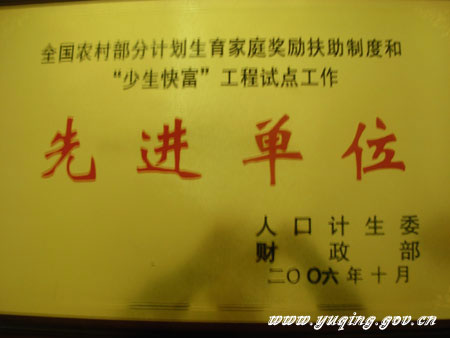 全国农村部分计划生育家庭奖励扶助制度和
“少生快富”工程试点工作
先进单位
人口计生委
财政部
二〇〇六年十月
www.yuqing.gov.cn